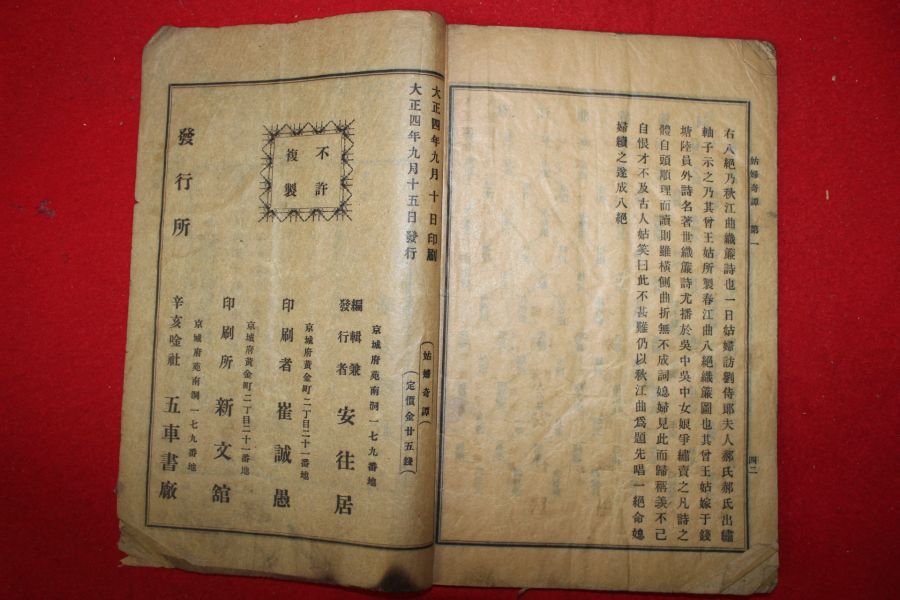 姑婦奇譚 第一
四二
右八絶乃秋江曲織簾詩也一日姑婦訪劉侍耶夫人郝氏郝氏出繡
軸子示之乃其曾王姑所製春江曲八絶織簾圖也其曾王姑嫁于錢
塘陸員外詩名著世織簾詩尤播於吳中吳中女娘爭繡賣之凡詩之
體自頭順理而讀則雖橫側曲折無不成詞媳婦見此而歸稱羨不己
自恨才不及古人姑笑曰此不甚難仍以秋江曲爲題先唱一絶命媳
婦續之遂成八絶
大正四年九月十日印刷
大正四年九月十五日發行
(姑婦奇譚)
(定價金廿五錢)
不許
複製
京城府苑南洞一七九番地
編輯兼
發行者 安往居
京城府黃金町二丁目二十一番地
印刷者 崔誠愚
京城府黃金町二丁目二十一番地
印刷所 新文舘
京城府苑南洞一七九番地
發行所 辛亥唫社 五車書廠